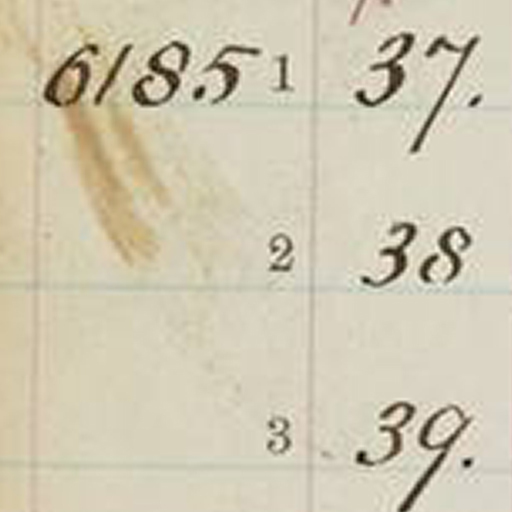 6185 1 37.
2 38
3 39.